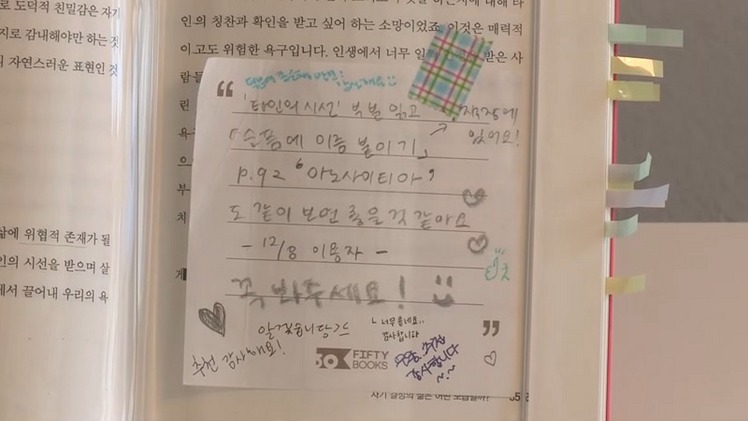 로 도덕적 친밀감은 자기
지로 감내해야만 하는 것
의 자연스러운 표현인 것
인의 칭찬과 확인을 받고 싶어 하는 소망이었죠. 이것은 매력적
이고도 위험한 욕구입니다. 인생에서 너무 일 받은 사
람들
린
욕구
으
부
치
게
'타인의 시선' 부분 읽고
책장에
있어요!
「슬픔에 이름 붙이기」
p.92 "아노사이티아"
도 같이 보면 좋을 것 같아요
- 12/8 이용자 -
꼭 봐주세요!
알겠습니당
너무 좋네요..
감사합니다
추천 감사해요!
감사합니다
50 FIFTY
BOOKS
삶에 위협적 존재가 될
인의 시선을 받으며 살
에서 끌어내 우리의 욕